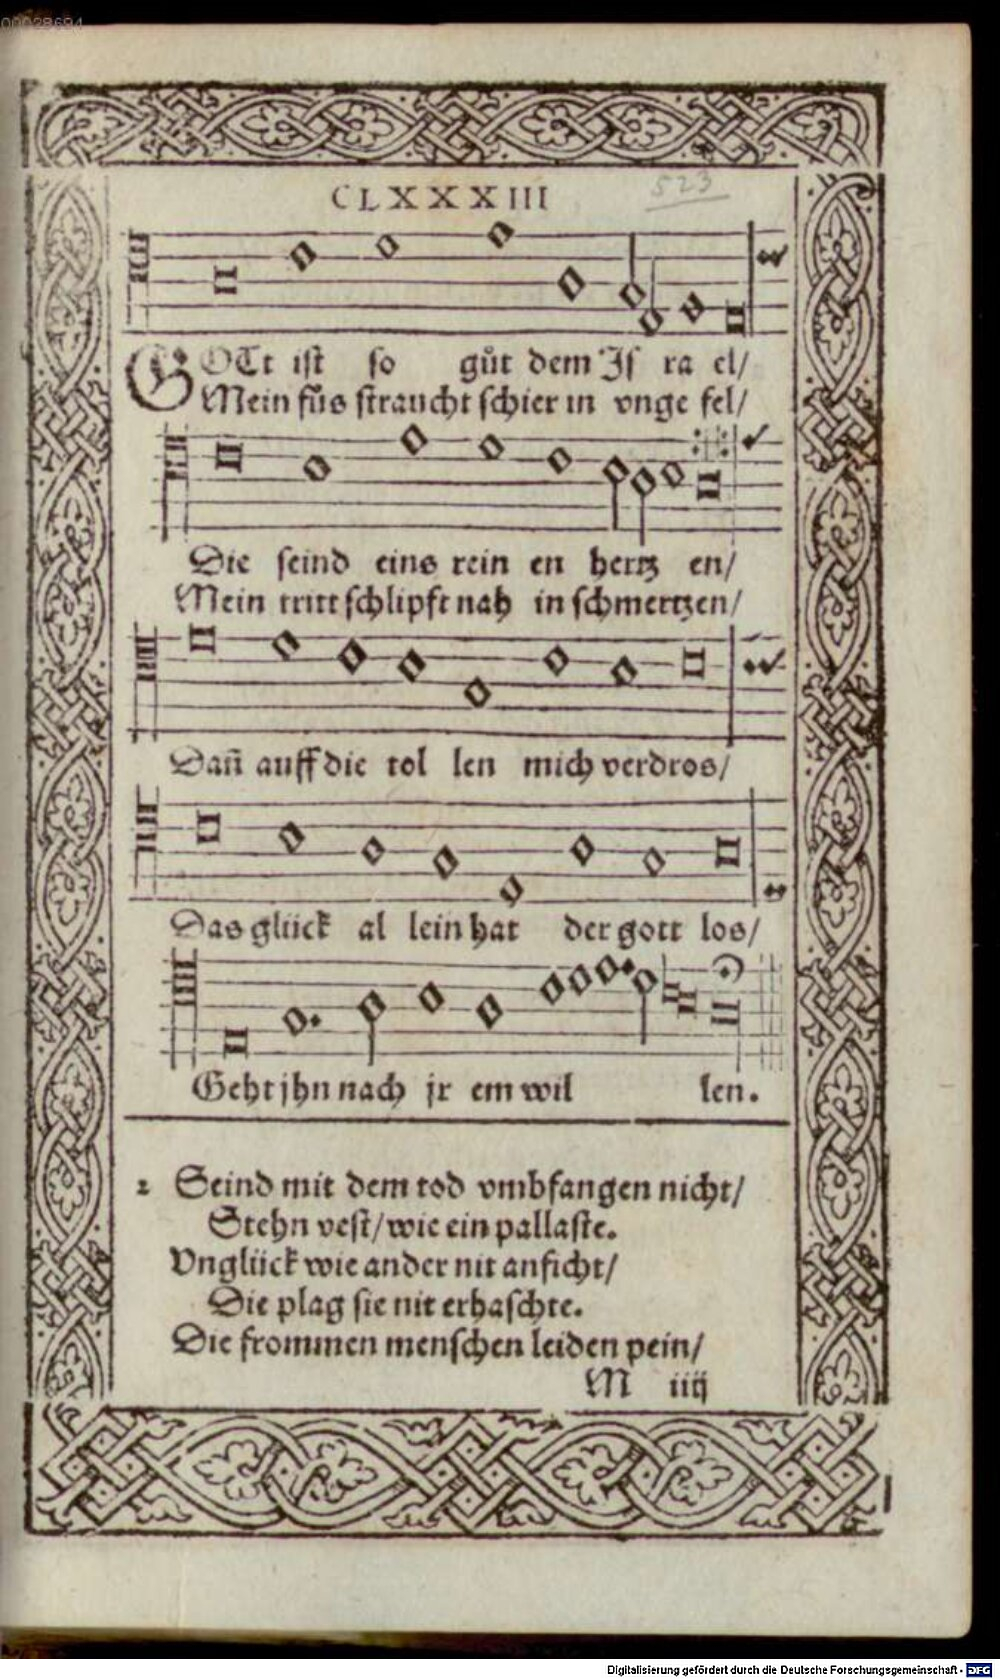 00028694
CLXXXIII
523
GOTt ist so gůt dem Is ra el/
Mein fůs straucht schier in vnge fel/
Die seind eins rein en hertz en/
Mein tritt schlipft nah in schmertzen/
Dañ auff die tol len mich verdros/
Das glück al lein hat der gott los/
Geht jhn nach jr em wil len.
2 Seind mit dem tod vmbfangen nicht/
Stehn vest/wie ein pallaste.
Vnglück wie ander nit anficht/
Die plag sie nit erhaschte.
Die frommen menschen leiden pein/
M iiij
Digitalisierung gefördert durch die Deutsche Forschungsgemeinschaft - DFG